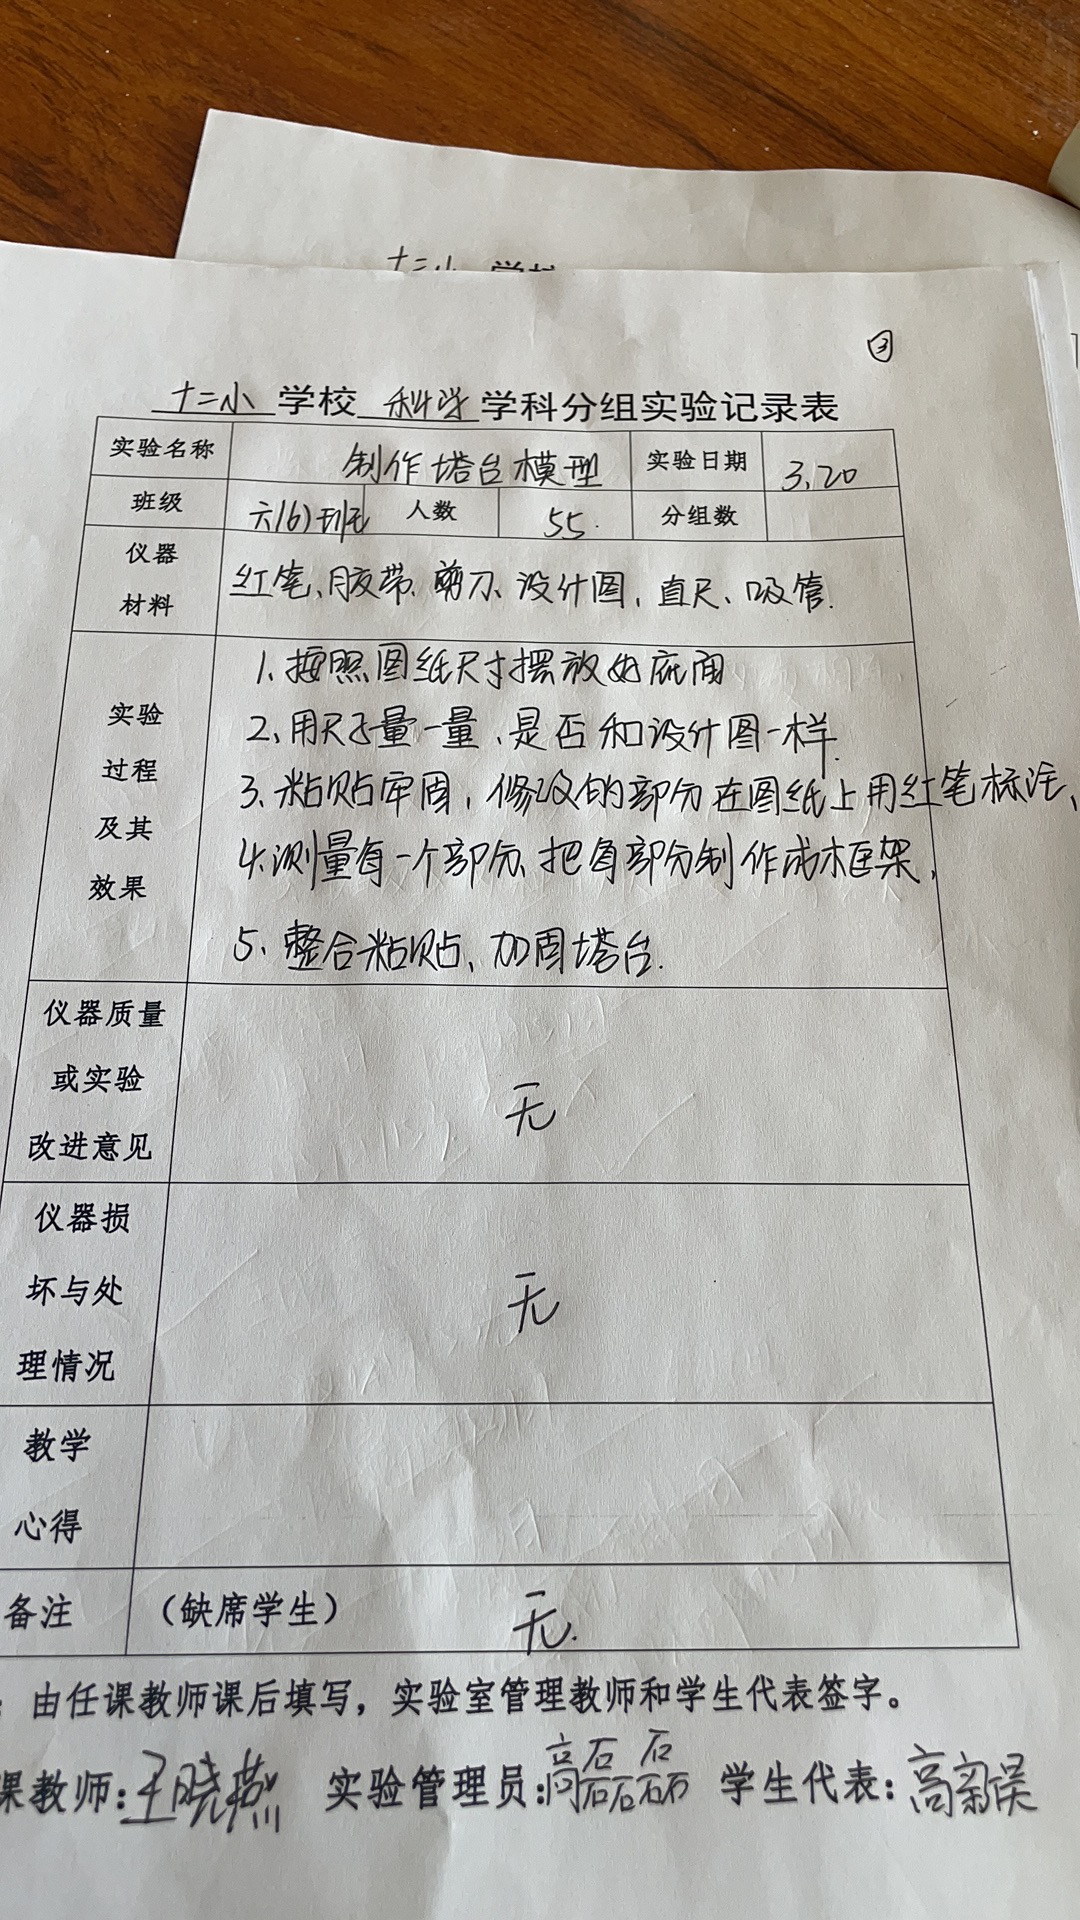 十二小 学校
③
十二小 学校 科学 学科分组实验记录表
实验名称 制作塔台模型 实验日期 3.20
班级 六(6)班 人数 55. 分组数
仪器材料 红笔、胶带、剪刀、设计图、直尺、吸管.
实验过程及其效果
1、按照图纸尺寸摆放好底面
2、用尺子量一量、是否和设计图一样.
3、粘贴牢固，修改的部分在图纸上用红笔标注、
4、测量每一个部分、把每部分制作成框架、
5、整合粘贴、加固塔台.
仪器质量或实验改进意见 无
仪器损坏与处理情况 无
教学心得
备注 （缺席学生） 无.
：由任课教师课后填写，实验室管理教师和学生代表签字。
课教师：王晓燕 实验管理员：高磊磊 学生代表：高新